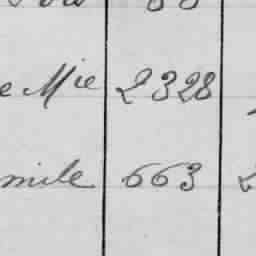 e Mie 2328
mile 663